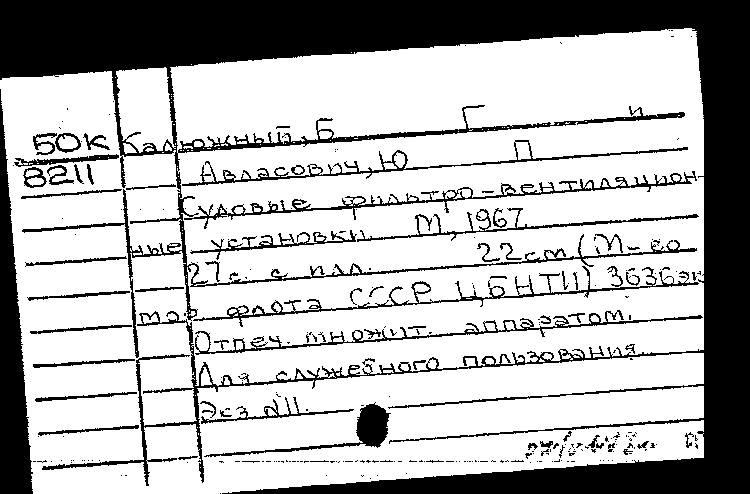 50К Калюжный, Б Г и
8211 Авласович, Ю П
Судовые фильтро-вентиляцион-
ные установки. М, 1967.
27 с. с илл. 22 см (М-во
мор флота СССР ЦБНТИ) 3636 эк
Отпеч. множит. аппаратом.
Для служебного пользования
Экз №11.